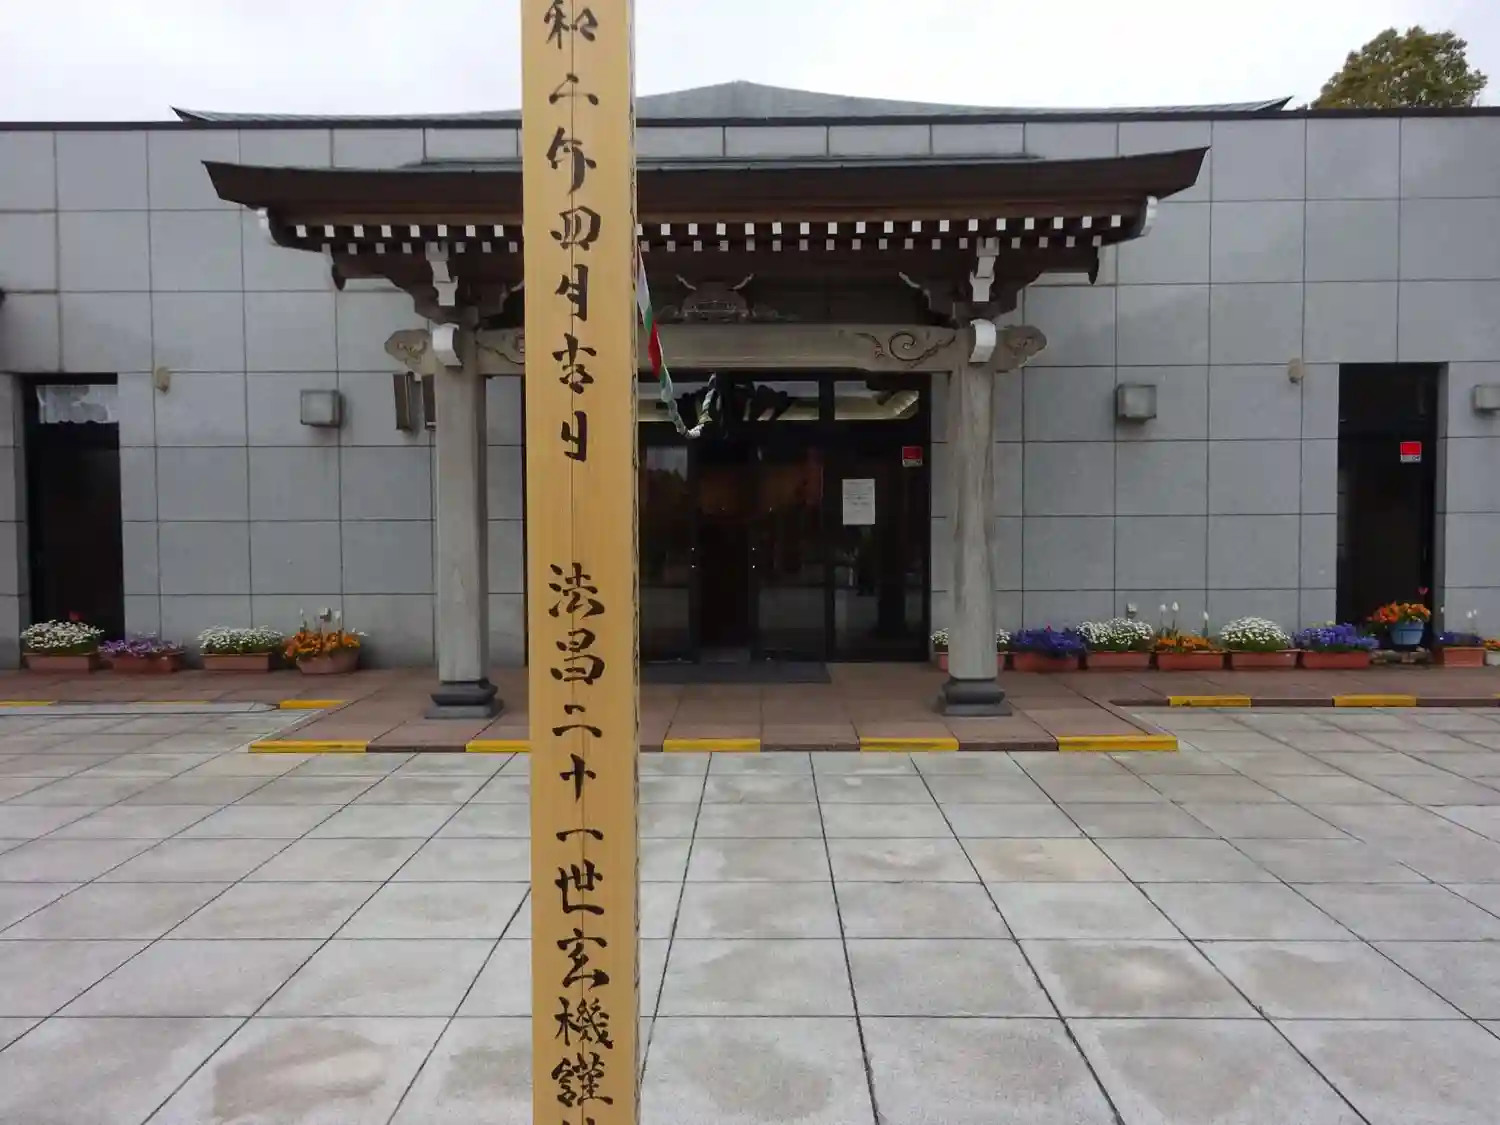 和二年四月吉日　法昌二十一世玄機謹